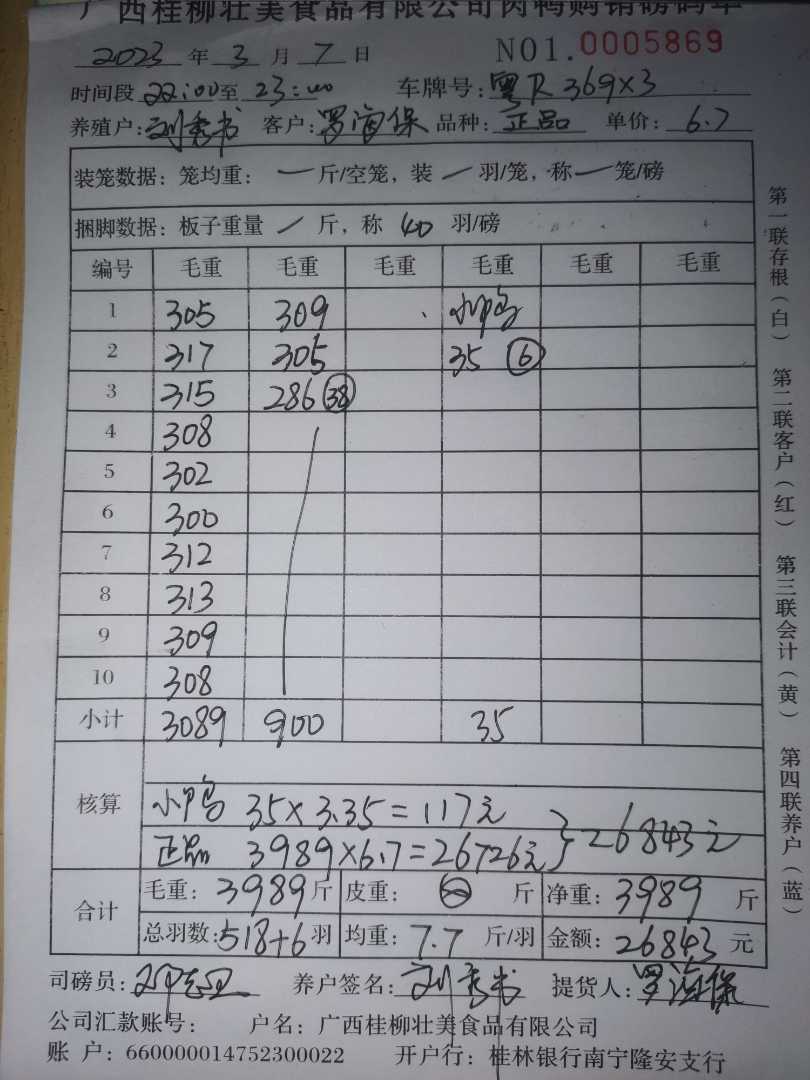 广西桂柳壮美食品有限公司肉鸭购销磅码单
2023 年 3 月 7 日 NO1.0005869
时间段 22:00至 23:00 车牌号: 粤R 369X3
养殖户: 刘秀书 客户: 罗海保 品种: 正品 单价: 6.7
装笼数据: 笼均重: 一 斤/空笼, 装 一 羽/笼, 称 一 笼/磅
捆脚数据: 板子重量 / 斤, 称 40 羽/磅
编号 毛重 毛重 毛重 毛重 毛重 毛重
1 305 309 小鸭
2 317 305 35 6
3 315 286 38
4 308
5 302
6 300
7 312
8 313
9 309
10 308
小计 3089 900 35
核算
小鸭 35×3.35=117元
正品 3989×6.7=26726元 } 26843元
合计
毛重: 3989 斤 皮重: 斤 净重: 3989 斤
总羽数: 518+6 羽 均重: 7.7 斤/羽 金额: 26843 元
司磅员: 养户签名: 刘秀书 提货人: 罗海保
公司汇款账号: 户名: 广西桂柳壮美食品有限公司
账 户: 660000014752300022 开户行: 桂林银行南宁隆安支行
第一联存根(白) 第二联客户(红) 第三联会计(黄) 第四联养户(蓝)